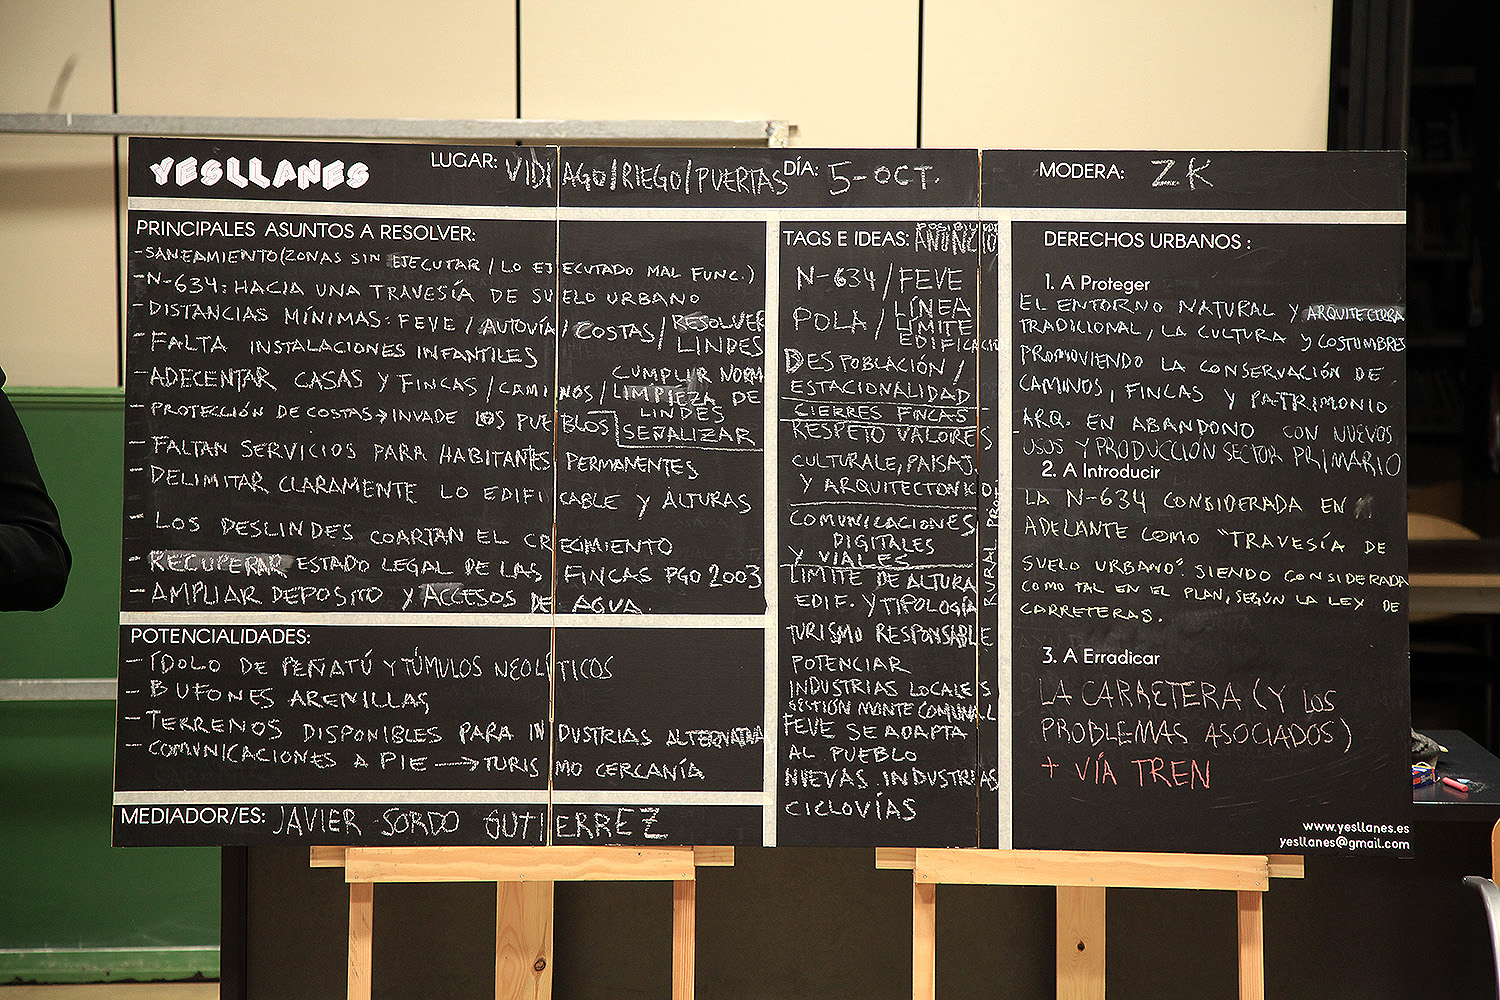 YESLLANES
LUGAR: VIDIAGO/RIEGO/PUERTAS
DÍA: 5-OCT.
MODERA: ZK
PRINCIPALES ASUNTOS A RESOLVER:
-SANEAMIENTO (ZONAS SIN EJECUTAR / LO EJECUTADO MAL FUNC.)
-N-634: HACIA UNA TRAVESÍA DE SUELO URBANO
-DISTANCIAS MÍNIMAS: FEVE / AUTOVÍA / COSTAS / RESOLVER
LINDES
-FALTA INSTALACIONES INFANTILES
-ADECENTAR CASAS Y FINCAS / CAMINOS / LIMPIEZA DE
CUMPLIR NORM
LINDES
-PROTECCIÓN DE COSTAS → INVADE LOS PUEBLOS
SEÑALIZAR
-FALTAN SERVICIOS PARA HABITANTES PERMANENTES
-DELIMITAR CLARAMENTE LO EDIFICABLE Y ALTURAS
-LOS DESLINDES COARTAN EL CRECIMIENTO
-RECUPERAR ESTADO LEGAL DE LAS FINCAS PGO 2003
-AMPLIAR DEPOSITO Y ACCESOS DE AGUA.
POTENCIALIDADES:
-ÍDOLO DE PEÑATÚ Y TÚMULOS NEOLÍTICOS
-BUFONES ARENILLAS
-TERRENOS DISPONIBLES PARA INDUSTRIAS ALTERNATIVA
-COMUNICACIONES A PIE → TURISMO CERCANÍA
MEDIADOR/ES: JAVIER SORDO GUTIERREZ
TAGS E IDEAS: ANUNCIO
N-634 / FEVE
POLA / LÍNEA
LÍMITE
EDIFICACIO
DESPOBLACIÓN /
ESTACIONALIDAD
CIERRES FINCAS
RESPETO VALORES
CULTURALE, PAISAJ.
Y ARQUITECTONICO
COMUNICACIONES
DIGITALES
Y VIALES
LIMITE DE ALTURA
EDIF. Y TIPOLOGÍA
TURISMO RESPONSABLE
POTENCIAR
INDUSTRIAS LOCALES
GESTIÓN MONTE COMUNAL
FEVE SE ADAPTA
AL PUEBLO
NUEVAS INDUSTRIAS
CICLOVÍAS
RURAL
DERECHOS URBANOS :
1. A Proteger
EL ENTORNO NATURAL Y ARQUITECTURA
TRADICIONAL, LA CULTURA Y COSTUMBRES
PROMOVIENDO LA CONSERVACIÓN DE
CAMINOS, FINCAS Y PATRIMONIO
ARQ. EN ABANDONO CON NUEVOS
USOS Y PRODUCCIÓN SECTOR PRIMARIO
2. A Introducir
LA N-634 CONSIDERADA EN
ADELANTE COMO "TRAVESÍA DE
SUELO URBANO". SIENDO CONSIDERADA
COMO TAL EN EL PLAN, SEGÚN LA LEY DE
CARRETERAS.
3. A Erradicar
LA CARRETERA (Y LOS
PROBLEMAS ASOCIADOS)
+ VÍA TREN
www.yesllanes.es
yesllanes@gmail.com